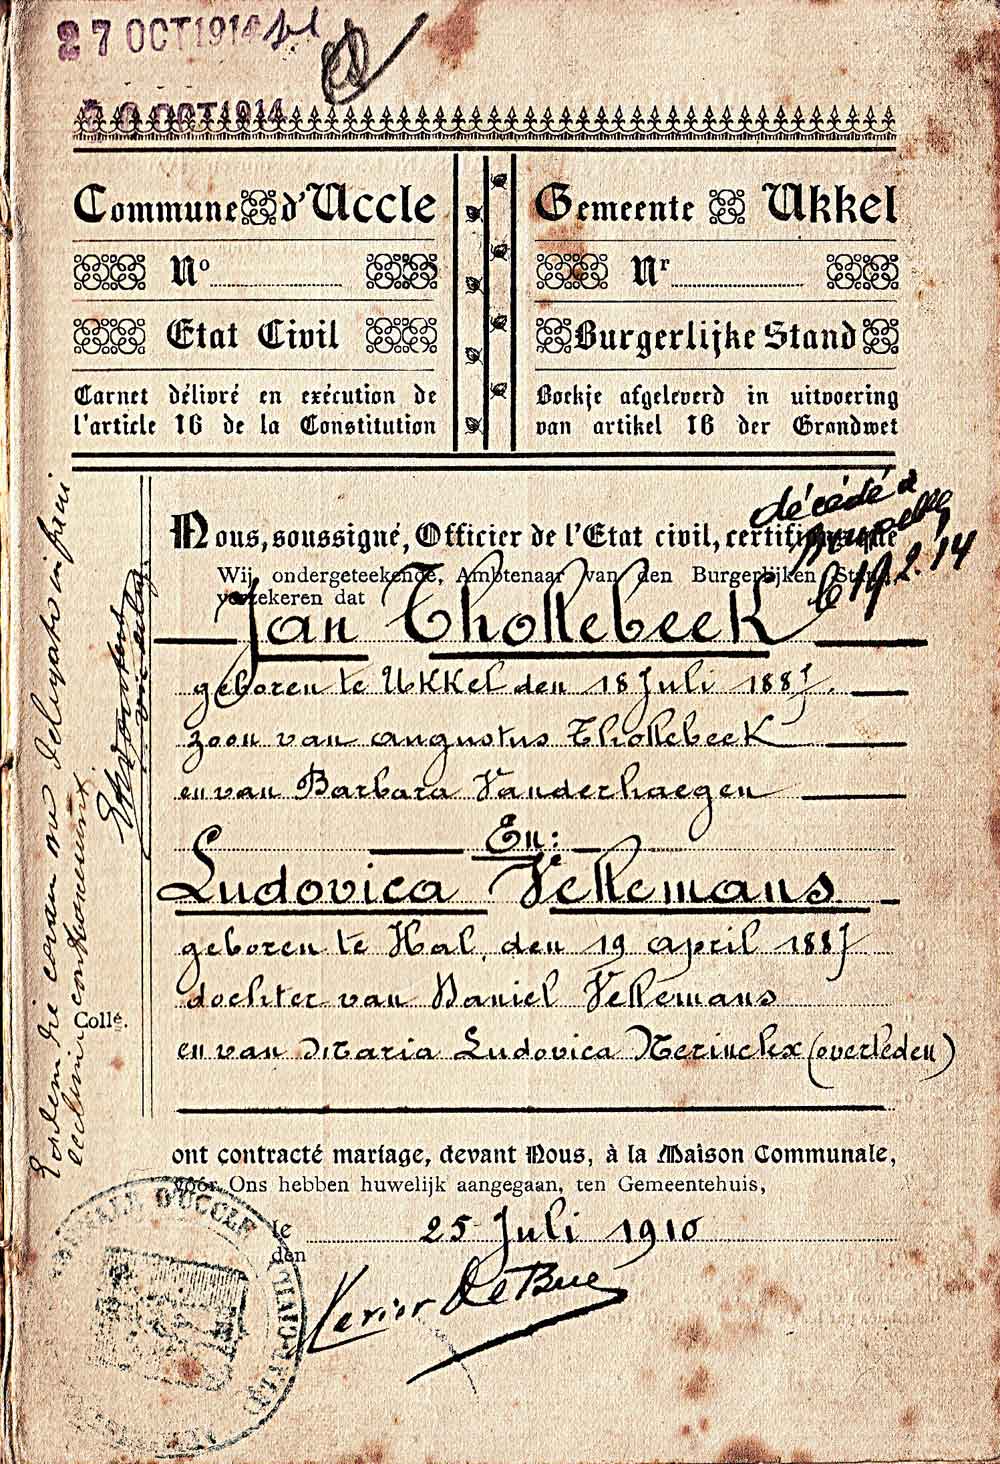 27 OCT 1914
OCT 1914
Commune d'Uccle
Nº
Etat Civil
Carnet délivré en exécution de
l'article 16 de la Constitution
Gemeente Ukkel
Nr
Burgerlijke Stand
Boekje afgeleverd in uitvoering
van artikel 16 der Grondwet
décédé à
le 19.2.14
Nous, soussigné, Officier de l'Etat civil, certifions que
Wij ondergeteekende, Ambtenaar van den Burgerlijken Stand,
verzekeren dat
Jan Thollebeek
geboren te Ukkel den 18 Juli 1887.
zoon van Augustus Thollebeek
en van Barbara Vanderhaegen
En:
Ludovica Vellemans
geboren te Hal, den 19 april 1887
dochter van Daniel Vellemans
en van Maria Ludovica Nerinckx (overleden)
Collé.
ont contracté mariage, devant Nous, à la Maison Communale,
vóór Ons hebben huwelijk aangegaan, ten Gemeentehuis,
le
den
25 Juli 1910
Xavier De Bue
D'UCCLE